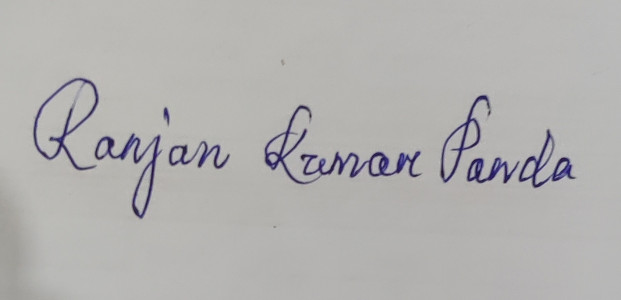 Ranjan Kumar Panda